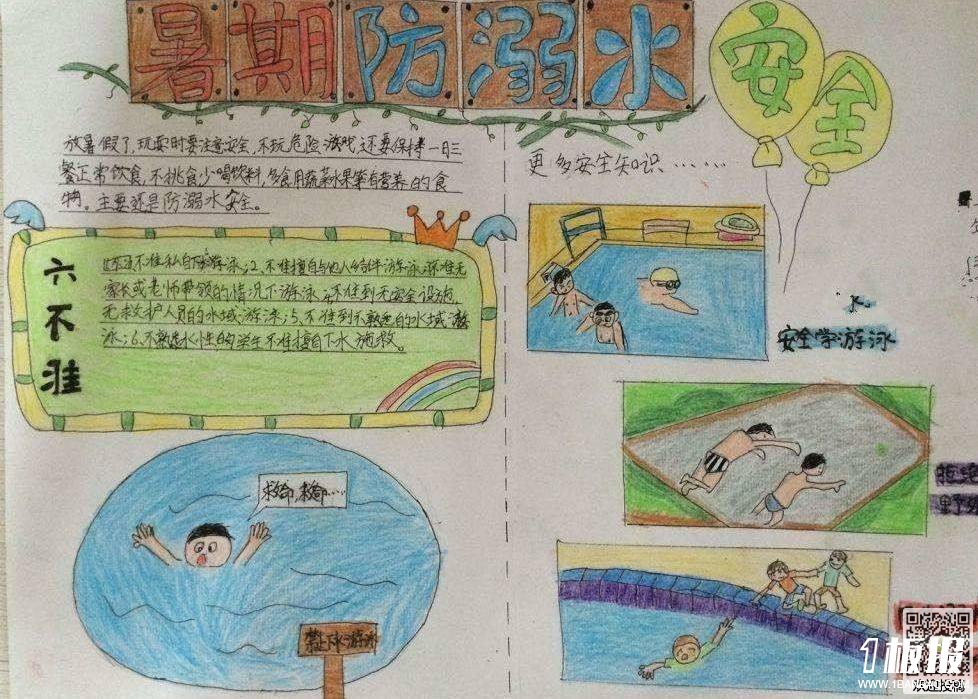 暑期防溺水安全
放暑假了,玩耍时要注意安全,不玩危险游戏,还要保持一日三
餐正常饮食,不挑食少喝饮料,多食用蔬菜水果等有营养的食
物。主要还是防溺水安全。
更多安全知识……
六不准
不准私自下水游泳;2、不准擅自与他人结伴游泳;
家长或老师带领的情况下游泳 不准到无安全设施,
无救护人员的水域游泳;5、不准到不熟悉的水域游
泳;6、不熟悉水性的学生不准擅自下水施救。
救命,救命…
禁止下水游泳
安全学游泳
拒绝
野
1板报
WWW.1BANBAO.COM
欢迎投稿